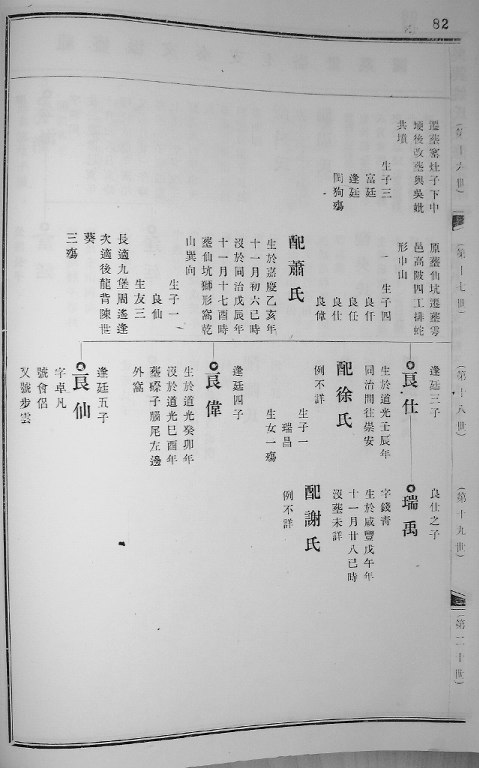 82
(第十六世)
遷塋窰灶子下中
墳後改塋與吳妣
共墳
生子三
富廷
逢廷
閏狗殤
(第十七世)
原塋仙坑遷塋雩
邑高陂四工排蛇
形巾山
生子四
良仟
良任
良仕
良偉
配蕭氏
生於嘉慶乙亥年
十一月初六巳時
沒於同治戊辰年
十一月十七酉時
塋仙坑獅形窩乾
山巽向
生子一
良仙
生女三
長適九堡周遙逢
次適後龍背陳世
葵
三殤
(第十八世)
逢廷三子
良仕
生於道光壬辰年
同治間往崇安
配徐氏
例不詳
生子一
瑞昌
生女一殤
逢廷四子
良偉
生於道光癸卯年
沒於道光巳酉年
塋瓈子腦尾左邊
外窩
逢廷五子
良仙
字卓凡
號會侶
又號步雲
(第十九世)
良仕之子
瑞禹
字錢青
生於咸豐戊午年
十一月廿八巳時
沒塋未詳
配謝氏
例不詳
(第二十世)